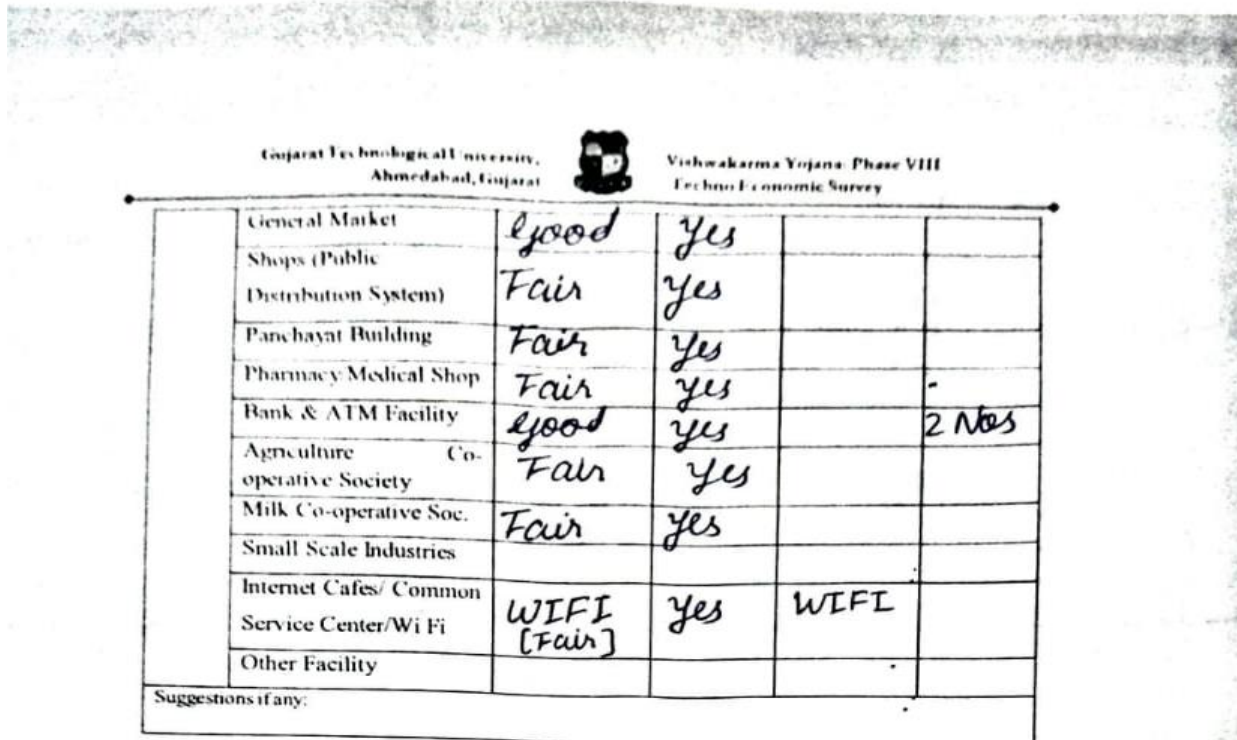 Gujarat Technological University,
Ahmedabad, Gujarat
Vishwakarma Yojana: Phase VIII
Techno Economic Survey
General Market Good Yes
Shops (Public
Distribution System) Fair Yes
Panchayat Building Fair Yes
Pharmacy/Medical Shop Fair Yes
Bank & ATM Facility Good Yes 2 Nos
Agriculture Co-
operative Society Fair Yes
Milk Co-operative Soc. Fair Yes
Small Scale Industries
Internet Cafes/ Common
Service Center/Wi Fi WIFI Yes WIFI
[Fair]
Other Facility
Suggestions if any: